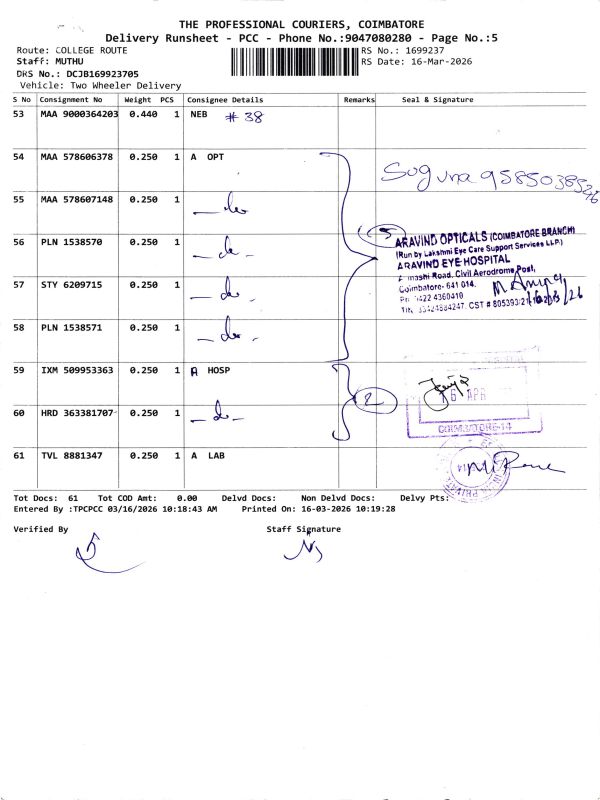 THE PROFESSIONAL COURIERS, COIMBATORE
Delivery Runsheet - PCC - Phone No.:9047080280 - Page No.:5
Route: COLLEGE ROUTE
RS No.: 1699237
Staff: MUTHU
RS Date: 16-Mar-2026
DRS No.: DCJB169923705
Vehicle: Two Wheeler Delivery
S No Consignment No Weight PCS Consignee Details Remarks Seal & Signature
53 MAA 9000364203 0.440 1 NEB # 38
54 MAA 578606378 0.250 1 A OPT
Suguna 9585038526
55 MAA 578607148 0.250 1 - do
56 PLN 1538570 0.250 1 - do -
5
ARAVIND OPTICALS (COIMBATORE BRANCH)
(Run by Lakshmi Eye Care Support Services LLP.)
ARAVIND EYE HOSPITAL
Avinashi Road, Civil Aerodrome Post,
Coimbatore- 641 014.
Ph: 0422 4360410
57 STY 6209715 0.250 1 - do -
58 PLN 1538571 0.250 1 - do -
59 IXM 509953363 0.250 1 A HOSP
2
60 HRD 363381707 0.250 1 - do -
COIMBATORE-14
61 TVL 8881347 0.250 1 A LAB
Tot Docs: 61 Tot COD Amt: 0.00 Delvd Docs: Non Delvd Docs: Delvy Pts:
Entered By :TPCPCC 03/16/2026 10:18:43 AM Printed On: 16-03-2026 10:19:28
Verified By
Staff Signature